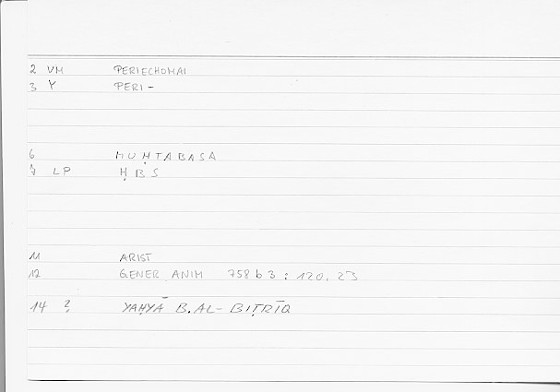 2 VM PERIECHOMAI
3 Y PERI-
6 MUḤTABASA
7 LP ḤBS
11 ARIST
12 GENER. ANIM 758 b 3 : 120, 23
14 ? YAḤYĀ B. AL-BIṬRĪQ